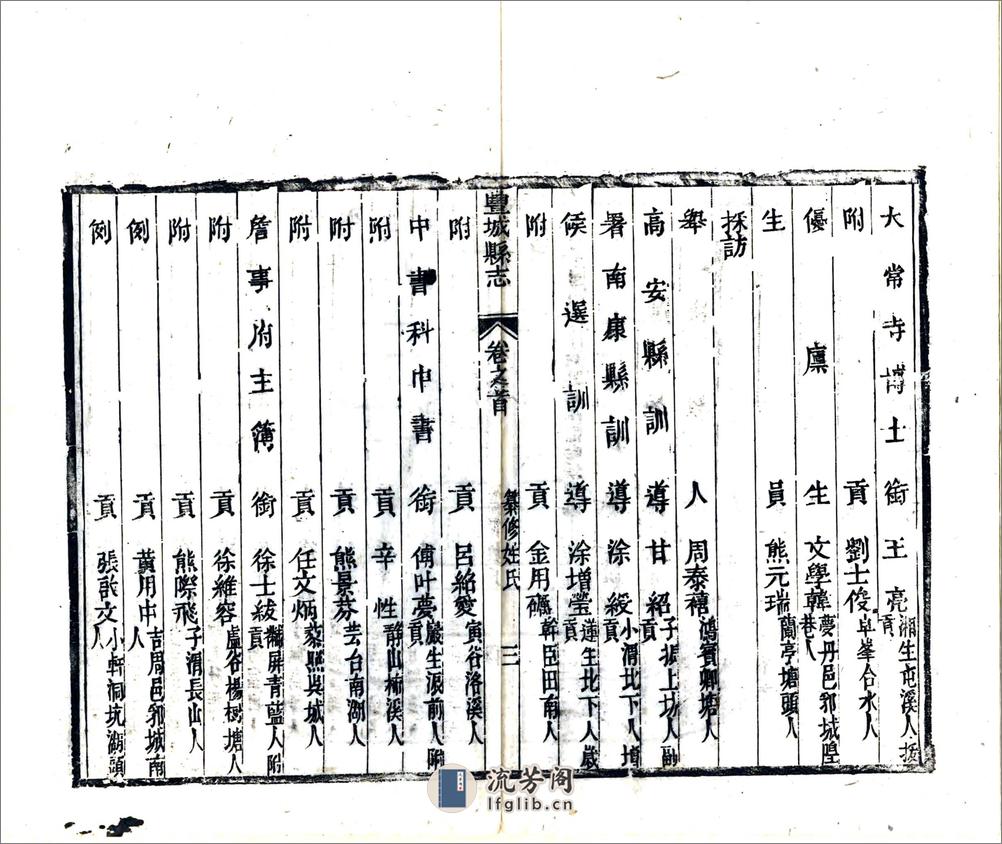 太常寺博士銜王亮湘生屯溪人拔貢
附貢劉士俊阜峯合水人
優廩生文學韓夢丹邑郭城隍巷人
生員熊元瑞蘭亭塘頭人
採訪
舉人周泰禧鴻賓卿塘人
高安縣訓導甘紹子振上坊人副貢
署南康縣訓導涂綬小渭北下人增貢
候選訓導涂增瑩蓮生北下人歲貢
附貢金用礪幹臣田南人
豐城縣志 卷之首 纂修姓氏 三
附貢呂紹愛寅谷洛溪人
中書科中書銜傅叶夢巖生源前人附貢
附貢辛性靜山柿溪人
附貢熊景芬芸台南湖人
附貢任文炳藜照吳城人
詹事府主簿銜徐士紱黼屏青藍人附貢
附貢徐維容盧谷楊樹塘人
附貢熊際飛子渭長山人
例貢黃用中吉周邑郭城南人
例貢張啟文小軒洞坑湖頭人
流芳阁
lfglib.cn